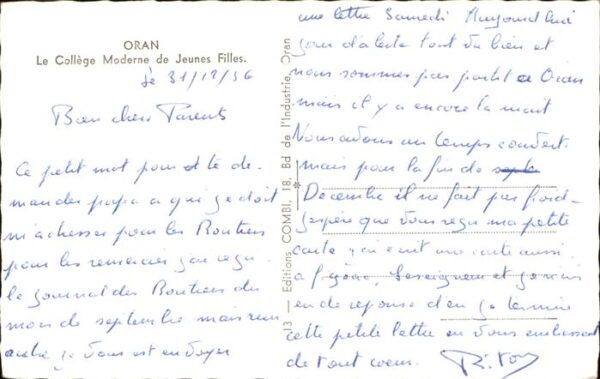 ORAN
Le Collège Moderne de Jeunes Filles.
le 31/12/56
Bien chers Parents
Ce petit mot pour te de-
mander papa a qui je doit
m'adresser pour les Routiers
pour les remercier j'ai reçu
le journal des Routiers du
mois de septembre mais rien
autre je vous est envoyer
13 — Editions COMBI, 18, Bd de l'Industrie, Oran
une lettre Samedi Aujourd'hui
jour d'alerte tout va bien et
nous sommes pas partit a Oran
mais il y a encore la nuit
Nous avons un temps couvert
mais pour la fin de
Décembre il ne fait pas froid
J'espère que vous reçu ma petite
carte j'ai écrit une carte aussi
a et je suis
en de réponse d'en je termine
cette petite lettre en vous embrassant
de tout coeur.